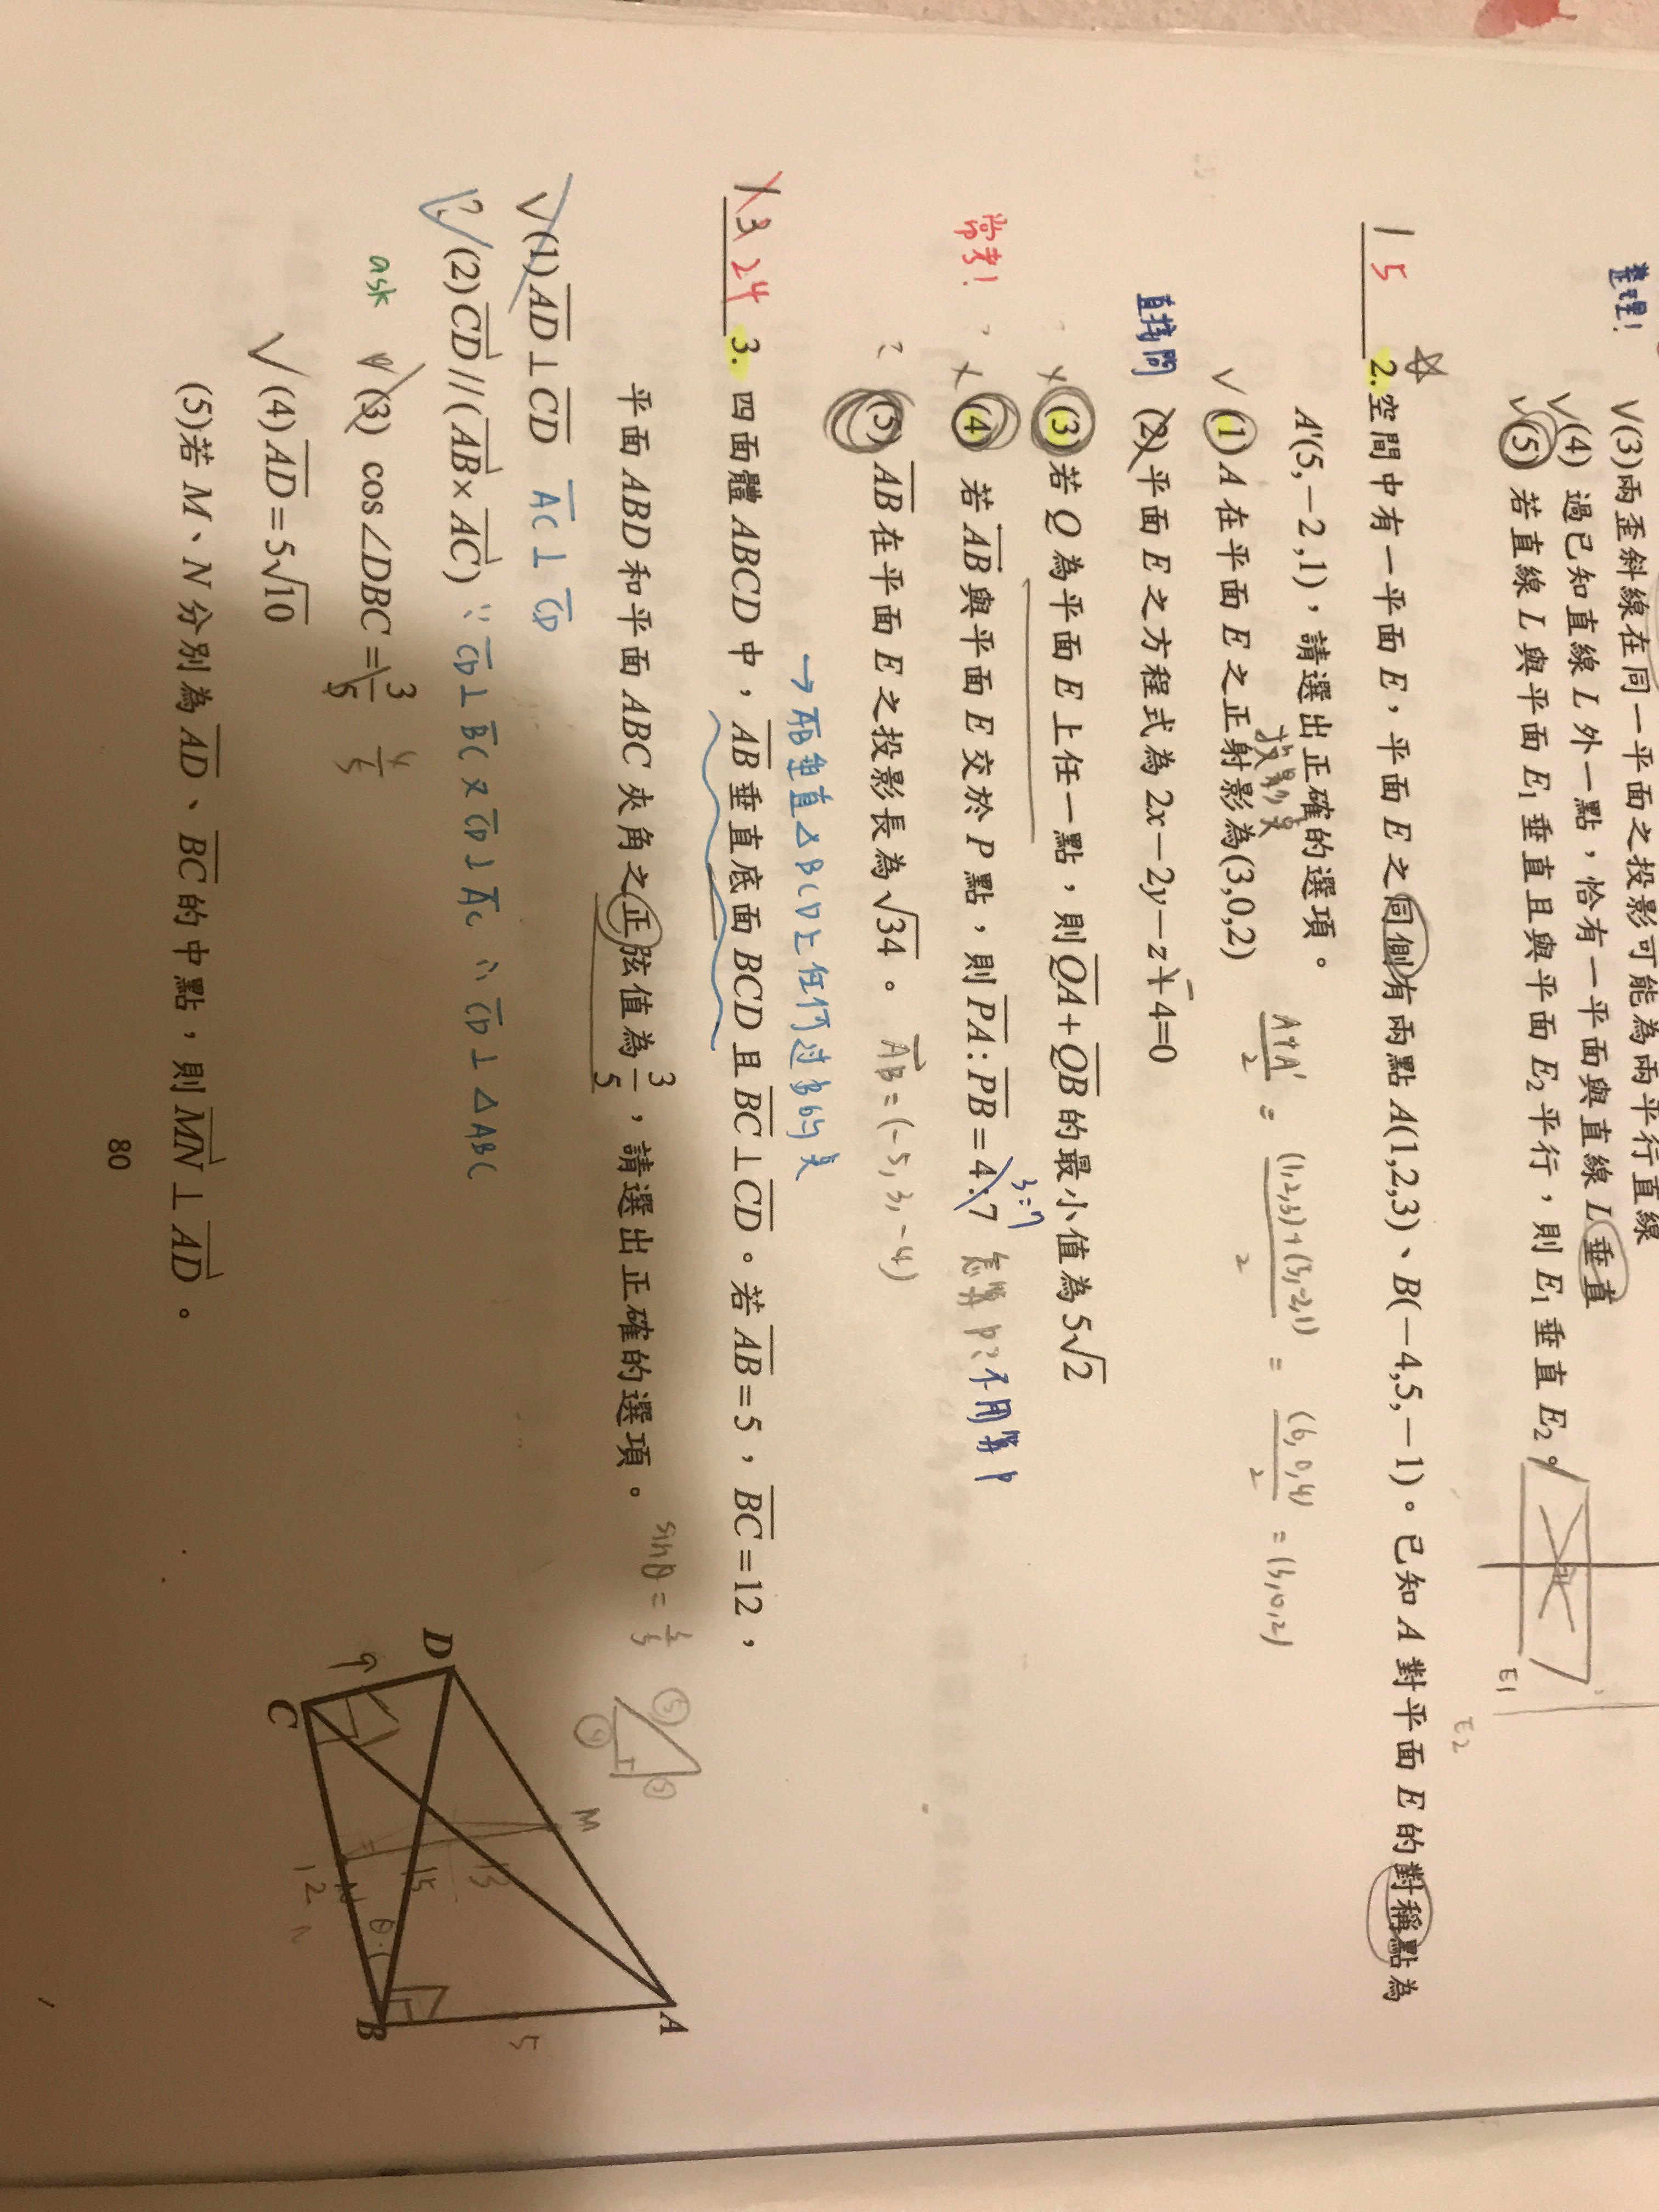 推理！
√(3)兩歪斜線在同一平面之投影可能為兩平行直線
√(4) 過已知直線 L 外一點，恰有一平面與直線 L 垂直
√(5) 若直線 L 與平面 E₁ 垂直且與平面 E₂ 平行，則 E₁ 垂直 E₂。
E1
E2
15
2. 空間中有一平面 E，平面 E 之同側有兩點 A(1,2,3)、B(−4,5,−1)。已知 A 對平面 E 的對稱點為
A'(5,−2,1)，請選出正確的選項。
投影點
A+A'/2 = (1,2,3)+(5,-2,1)/2 = (6,0,4)/2 = (3,0,2)
√(1) A 在平面 E 之正射影為(3,0,2)
(2) 平面 E 之方程式為 2x−2y−z+4=0
×(3) 若 Q 為平面 E 上任一點，則 QA+QB 的最小值為 5√2
常考！
×(4) 若 AB 與平面 E 交於 P 點，則 PA:PB=4:7 3:7 怎算 P? 不用算 P
?(5) AB 在平面 E 之投影長為√34。 AB=(-5,3,-4)
→ AB 垂直△BCD上任何过B的线
24 3. 四面體 ABCD 中，AB 垂直底面 BCD 且 BC⊥CD。若 AB=5，BC=12，
平面 ABD 和平面 ABC 夾角之正弦值為3/5，請選出正確的選項。 sinθ=3/5
√(1) AD⊥CD AC⊥CD
(2) CD//(AB×AC) ∵ CD⊥BC 又 CD⊥AC ∴ CD⊥△ABC
ask (3) cos∠DBC=3/5 4/5
√(4) AD=5√10
(5)若 M、N 分別為 AD、BC 的中點，則 MN⊥AD。
A
B
C
D
M
N
9
12
15
13
5
θ
80